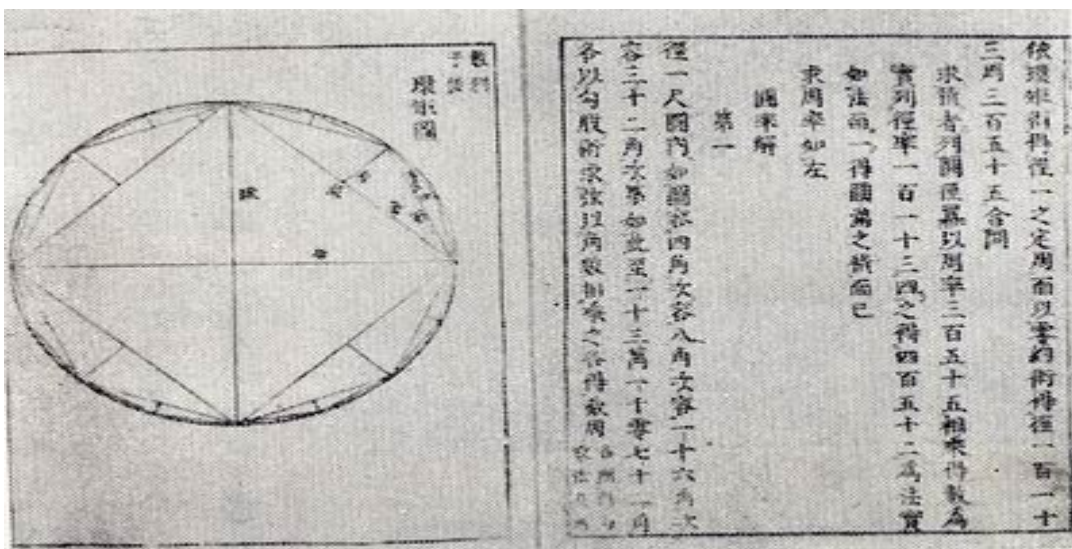 依環矩術得徑一之定周而以零約術得徑一百一十
三周三百五十五合問
求積者列圓徑冪以周率三百五十五相乘得數爲
實列徑率一百一十三四之得四百五十二爲法實
如法而一得圓之積而已
求周率如左
圓率解
第一
徑一尺圓内如圖容四角次容八角次容一十六角次
容三十二角次第如此至一十三萬一千零七十二角
各以勾股術求弦以角數相乘之各得截周
環矩圖
弦